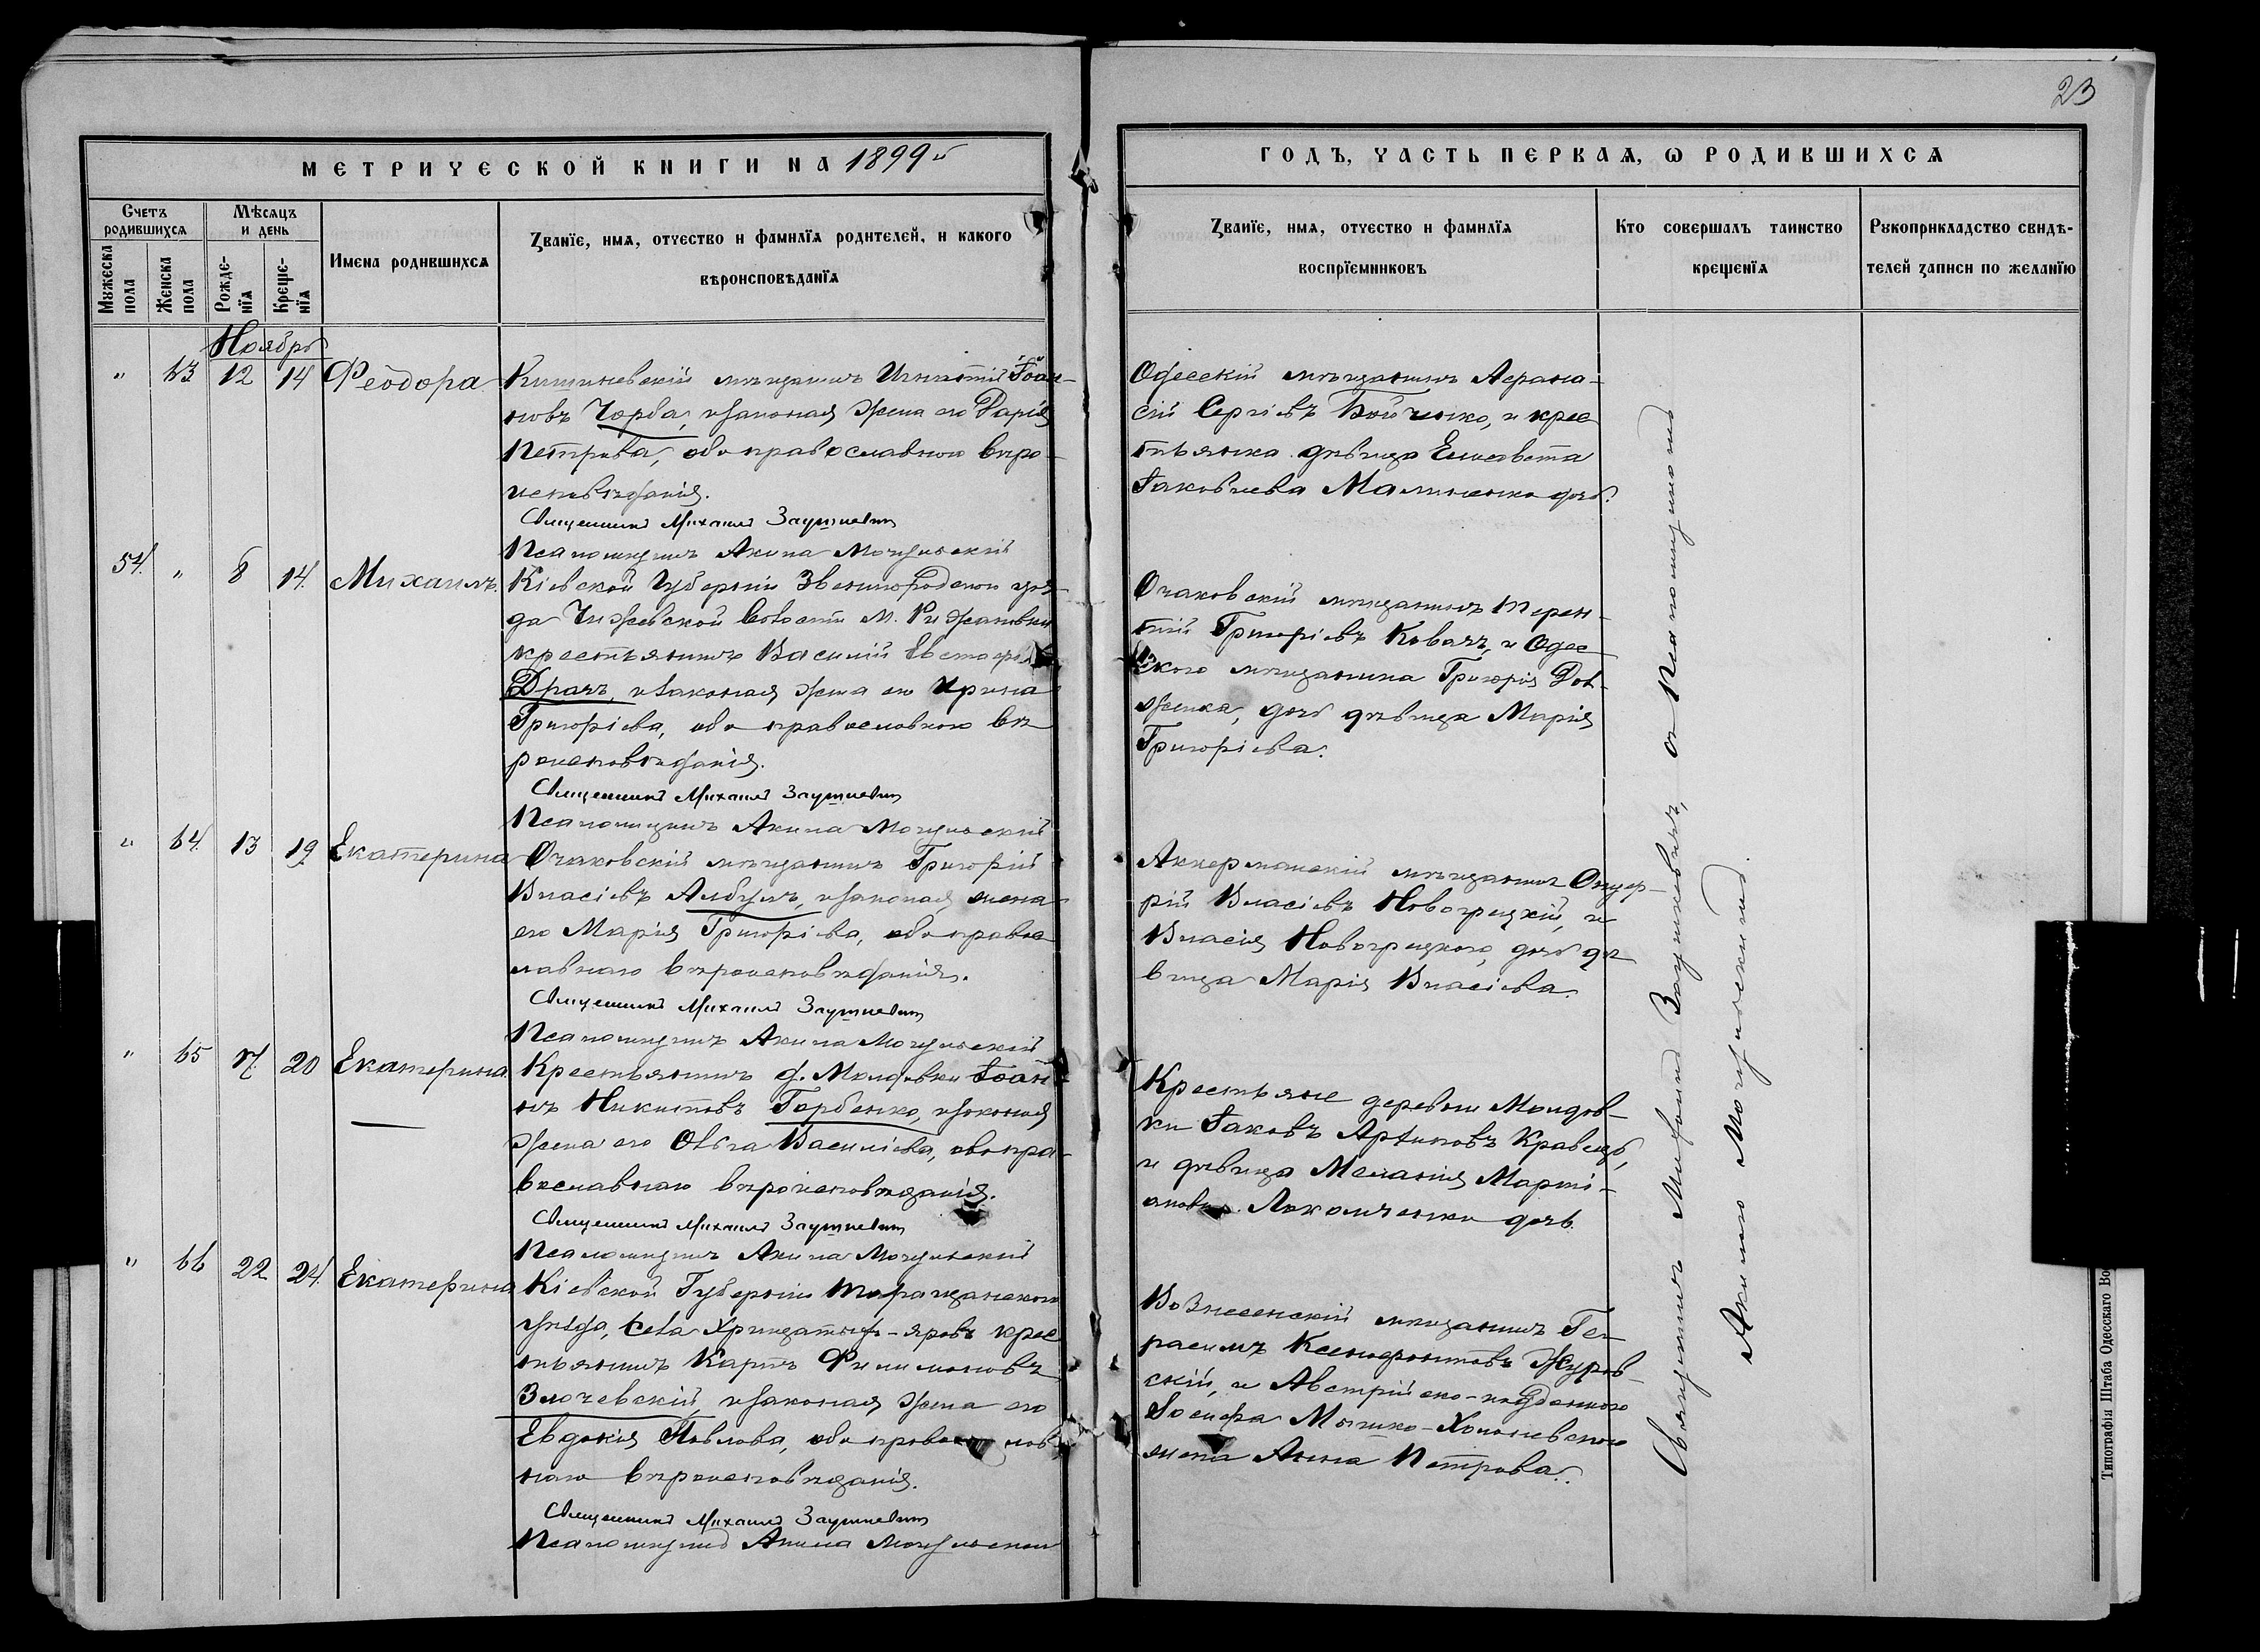 23
МЕТРИЧЕСКОЙ КНИГИ НА 1899й
ГОДЪ, ЧАСТЬ ПЕРВАЯ, Ѡ РОДИВШИХСЯ
Счетъ родившихся
Мѣсяцъ и день
Мужеска пола
Женска пола
Рожденїя
Крещенїя
Имена родившихся
Званїе, имя, отчество и фамилїя родителей, и какого
вѣроисповѣданїя
Званїе, имя, отчество и фамилїя
воспрїемниковъ
Кто совершалъ таинство
крещенїя
Рукоприкладство свидѣ-
телей записи по желанїю
Ноябрь
" 63 12 14 Феодора
Кишиневскій мѣщанинъ Игнатій Іоан-
новъ Чорба, и законная жена его Дарія
Петрова, оба православного вѣро-
исповѣданія.
Священникъ Михаилъ
Псаломщикъ Акила
Одесскій мѣщанинъ Афана-
сій Сергіевъ Бойченко, и крес
тьянка дѣвица Елисавета
Іаковлева дочь.
54. " 8 14. Михаилъ.
Кіевской Губерніи Звенигородского уѣз-
да Чижевской волости м. Рижановки
крестьянинъ Василій
Драчъ, и законная жена его Ирина
Григоріева, оба православного вѣ
роисповѣданія.
Священникъ Михаилъ
Псаломщикъ Акила
Очаковскій мѣщанинъ Терен-
тій Григоріевъ Ковачъ, и Одес
ского мѣщанина Григорія Дов-
женка, дочь дѣвица Марія
Григоріева.
" 64. 13 19 Екатерина
Очаковскій мѣщанинъ Григорій
Власіевъ Албулъ, и законная жена
его Марія Григоріева, оба правос
лавнаго вѣроисповѣданія.
Священникъ Михаилъ
Псаломщикъ Акила
Аккерманскій мѣщанинъ
Власіевъ Новогрецкій, и
Власія Новогрецкого, дочь дѣ
вица Марія Власіева.
" 65 17. 20 Екатерина
Крестьянинъ д. Молдовки Іоан-
нъ Никитовъ Горбенко, и законная
жена его Ольга Василіева, оба пра-
вославнаго вѣроисповѣданія.
Священникъ Михаилъ
Псаломщикъ Акила
Крестьяне деревни Молдов-
ки Іаковъ Кравецъ,
и дѣвица Меланія Марті-
анова дочь.
" 66 22 24. Екатерина
Кіевской Губерніи Таращанского
уѣзда, села крес
тьянинъ Карпъ Филимоновъ
Злочевскій, и законная жена его
Евдокія Павлова, оба православ
ного вѣроисповѣданія.
Священникъ Михаилъ
Псаломщикъ Акила
Вознесенскій мѣщанинъ Ге-
расимъ Ксенофонтовъ Журов-
скій, и Австрійско-подданного
Іосифа
жена Анна Петрова.
Священникъ Михаилъ съ Псаломщикомъ
Акилою
Типографія Штаба Одесскаго Во